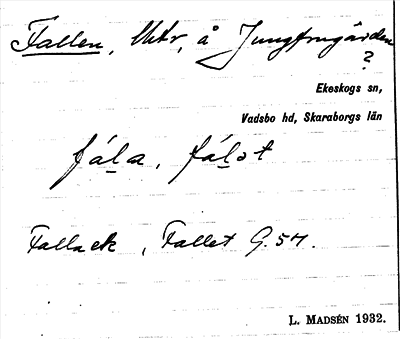 Fallen, Mtr, å Jungfrugården
?
Ekeskogs sn,
Vadsbo hd, Skaraborgs län
fála, fálət
Fallack, Fallet G. 54.
L. Madsén 1932.